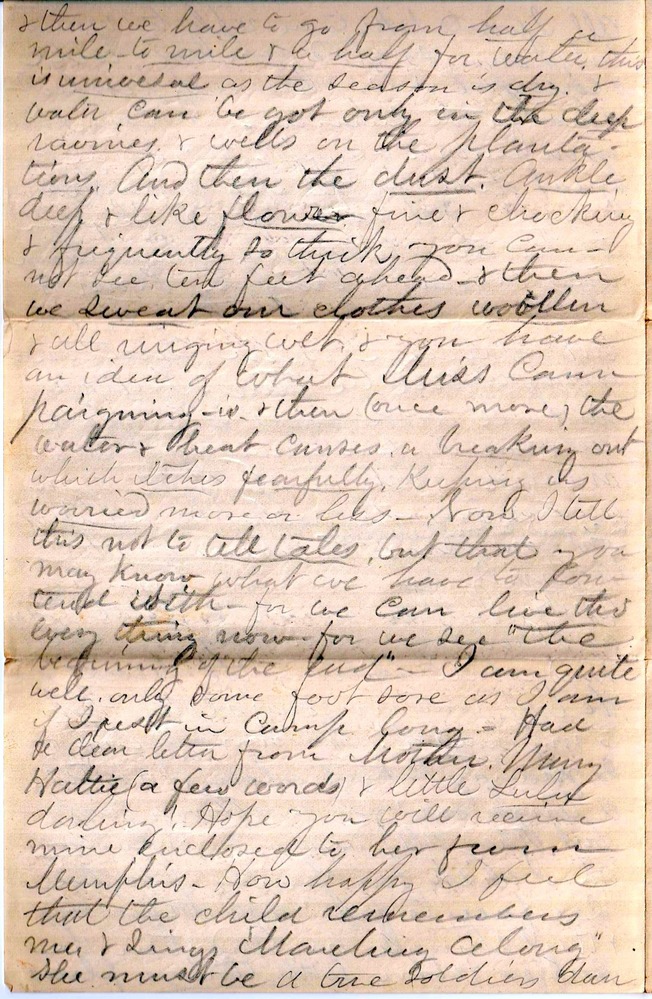 & then we have to go from half a
mile to mile & a half for water, this
is universal as the season is dry. &
water can be got only in the deep
ravines & wells on the planta-
tions. And then the dust. Ankle
deep & like flower fine & chocking
& frequently so thick you can-
not see ten feet ahead - & then
we sweat our clothes woollen
& all ringing wet, & you have
an idea of what Miss Cam
paigning - is - & then (once more) the
water & heat causes a breaking out
which itches fearfully. Keeping us
worried more or less - Now I tell
this not to tell tales, but that you
may know what we have to con-
tend with - for we can live thro
every thing now - for we see "the
beginning of the End" - I am quite
well, only some foot sore as I am
if I rest in Camp long - Had
dear letter from Mother, Mary
Hattie (a few words) & little Lulu
darling! Hope you will receive
mine enclosed to her from
Memphis - How happy I feel
that the child remembers
me & Sings Marching Along"
She must be a true Soldiers dau